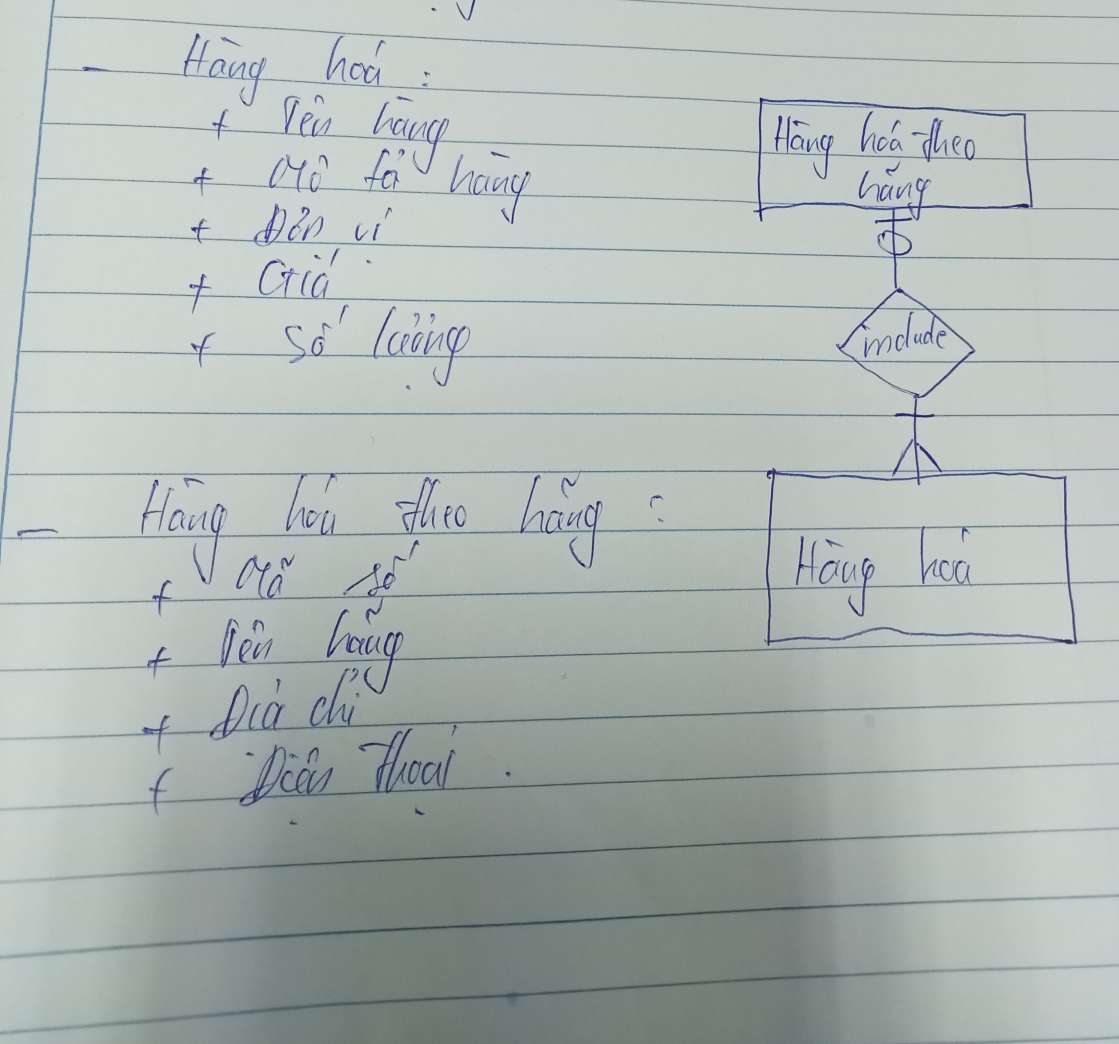 - Hàng hoá :
+ Tên hàng
+ Mô tả hàng
+ Đơn vị
+ Giá
+ Số lượng
- Hàng hoá theo hãng :
+ Mã số
+ Tên hãng
+ Địa chỉ
+ Điện thoại .
Hàng hoá theo
hãng
include
Hàng hoá